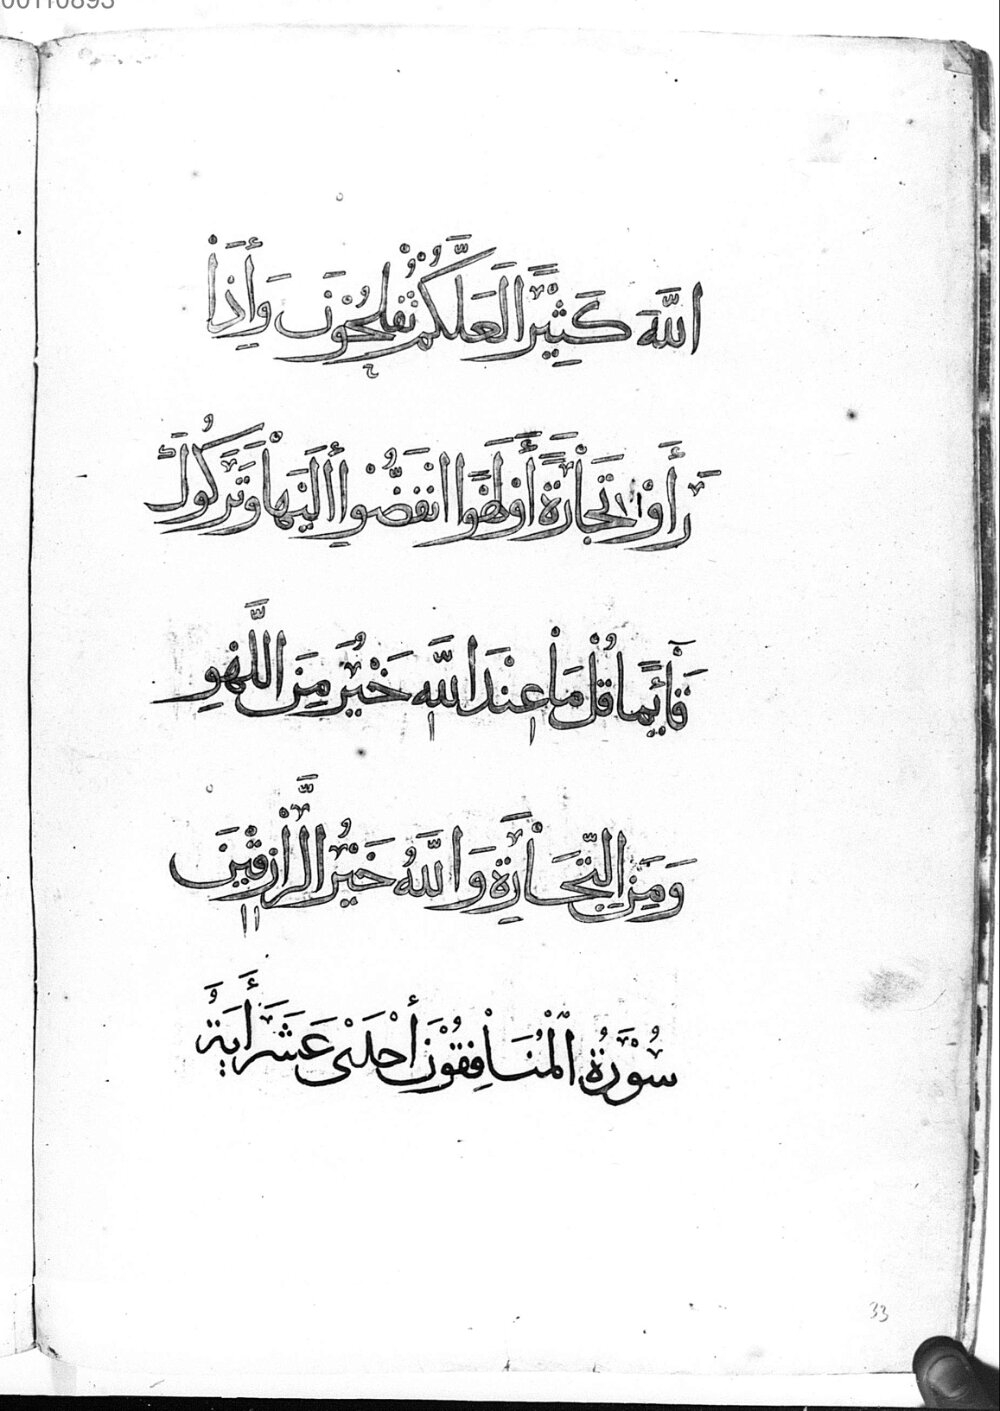 00110893
اللَّهَ كَثِيْرًا لَعَلَّكُمْ تُفْلِحُوْنَ وَأِذَاْ
رَأَوْا تِجَاْرَةً أَوْ لَهْوًا انْفَضُّوْا أِلَيْهَاْ وَتَرَكُوْكَ
قَاْئِمًا قُلْ مَاْ عِنْدَ اللَّهِ خَيْرٌ مِنَ اللَّهْوِ
وَمِنَ التِّجَاْرَةِ وَاللَّهُ خَيْرُ الرَّاْزِقِيْنَ
سُوْرَةُ الْمُنَاْفِقُوْنَ أَحْدَىْ عَشَرَ أَيَةً
33